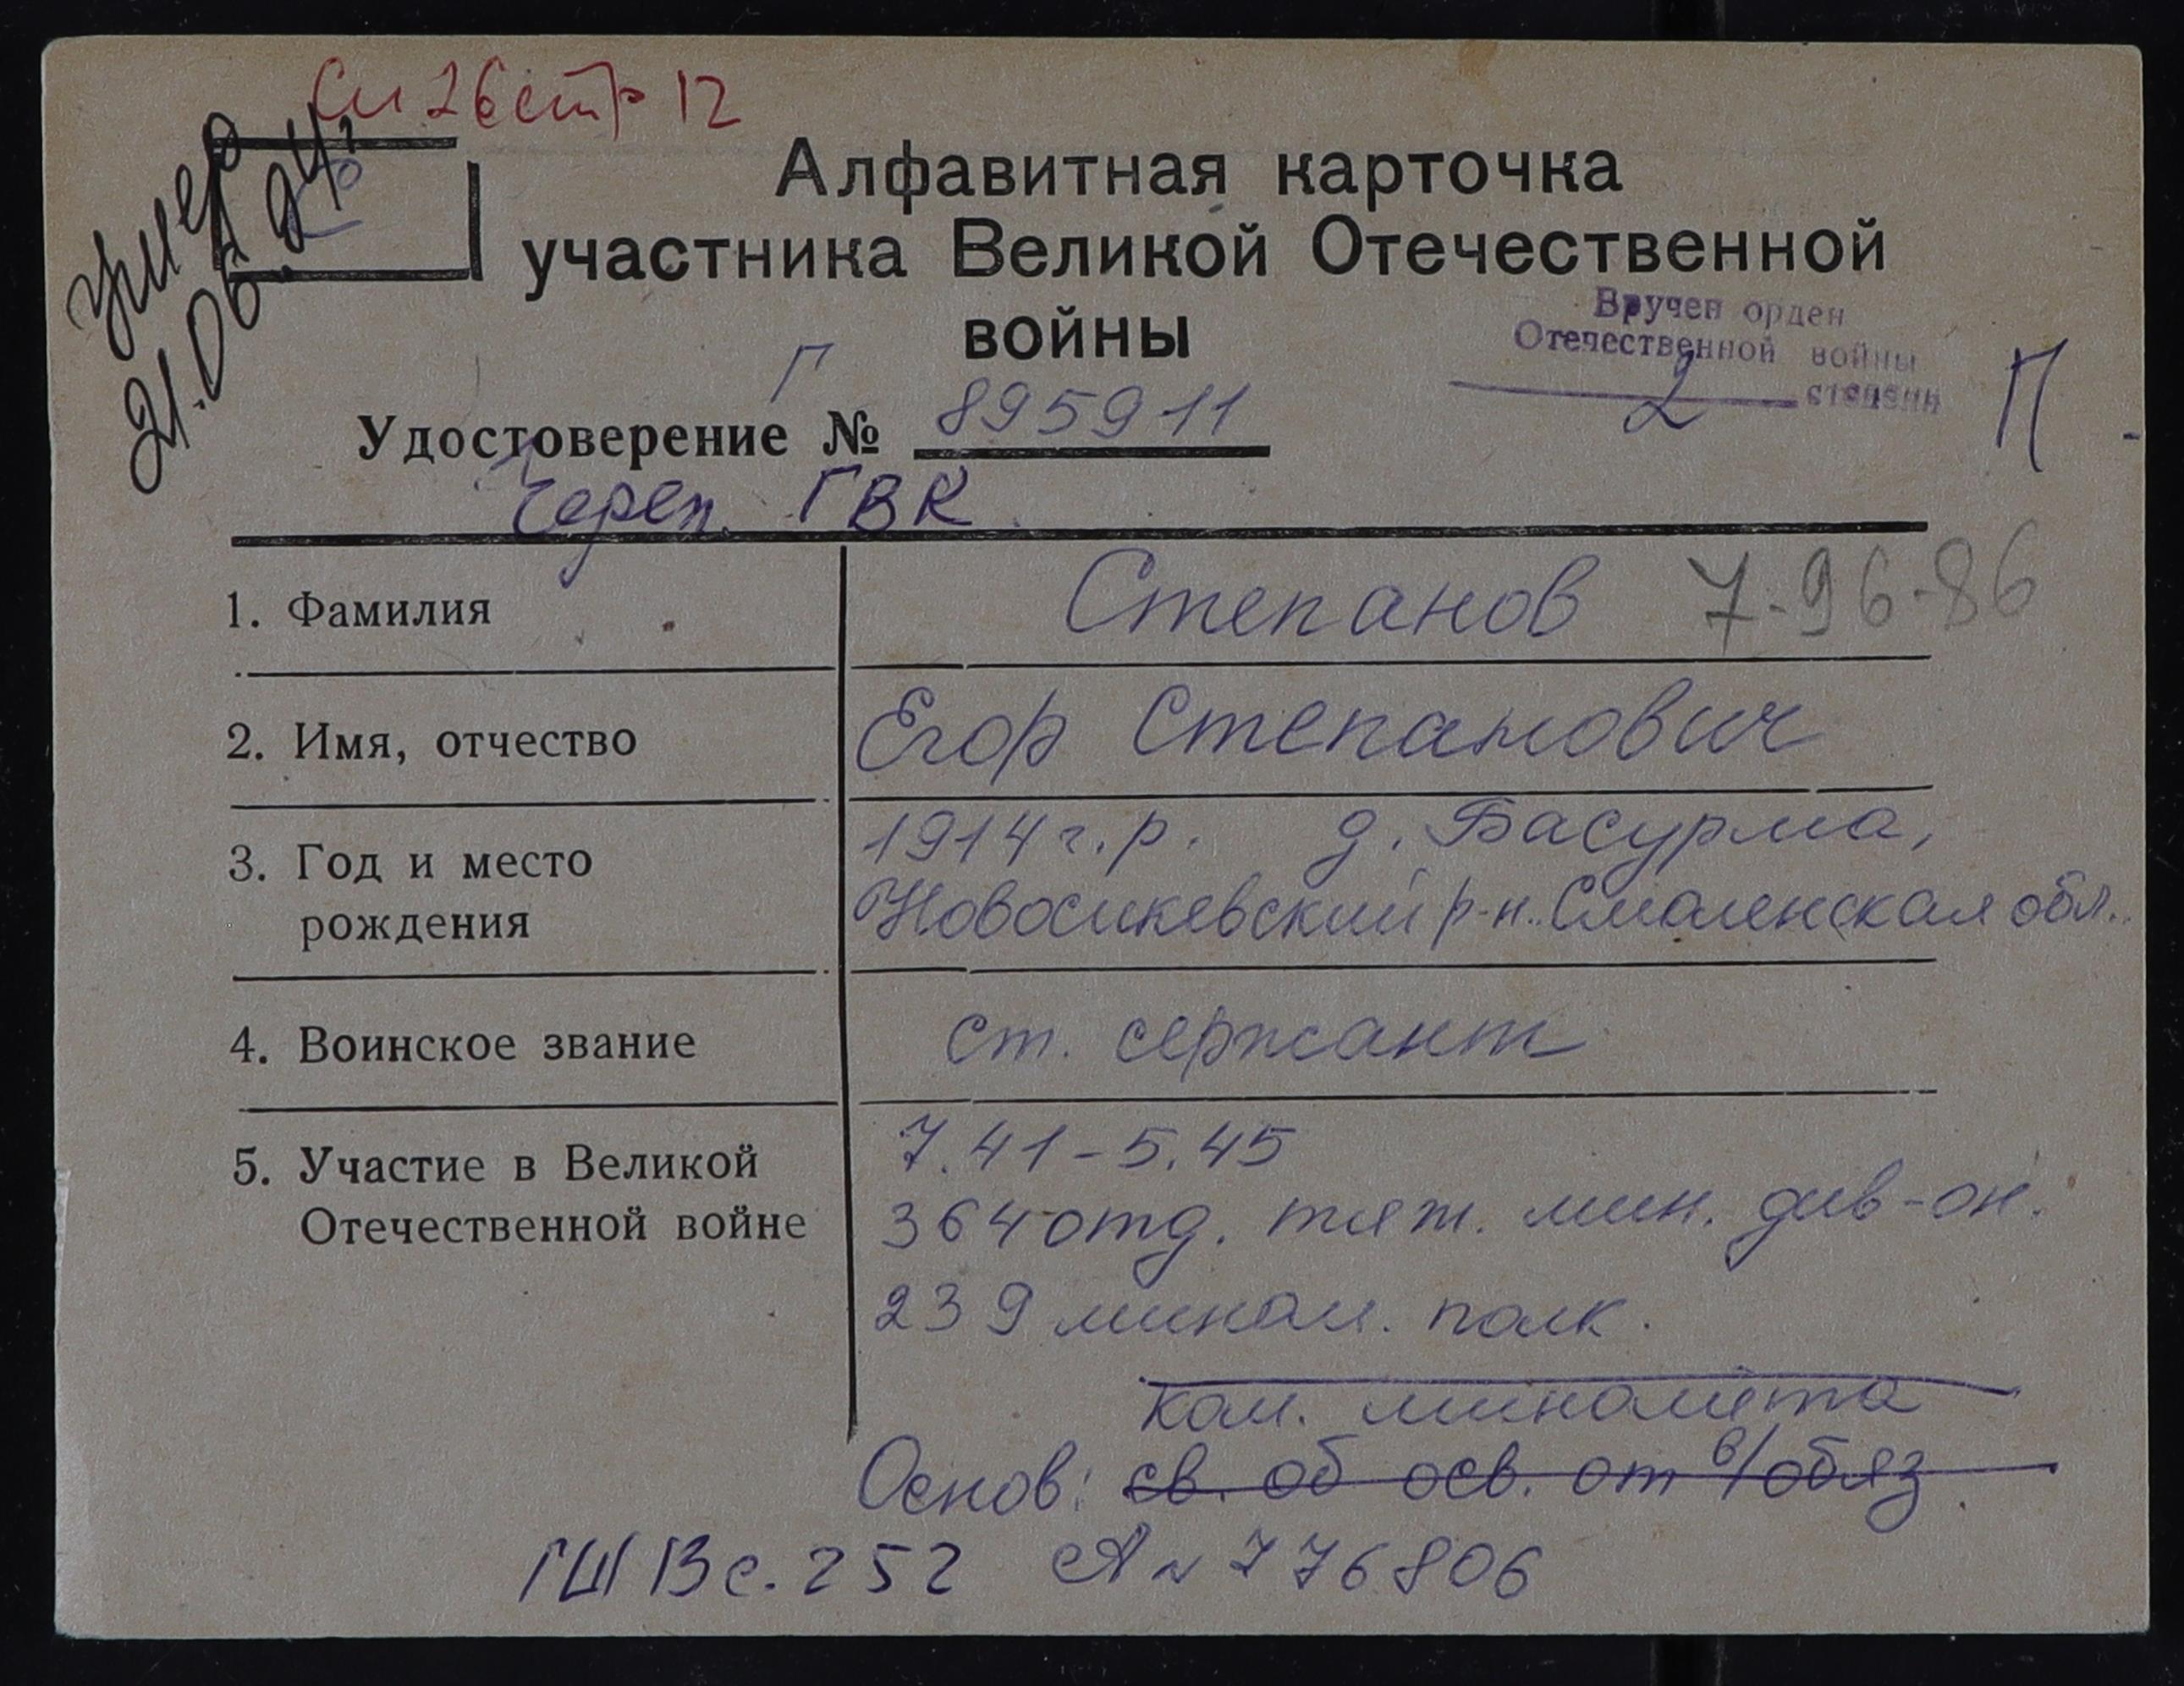 Сп 26 стр 12
умер
21.06.94г.
Алфавитная карточка
участника Великой Отечественной
войны
Вручен орден
Отечественной войны
2 степени
П
Г
Удостоверение № 895911
Череп. ГВК
1. Фамилия
Степанов 7-96-86
2. Имя, отчество
Егор Степанович
3. Год и место
рождения
1914 г.р. д. Басурма,
Новосикевский р-н. Смоленская обл.
4. Воинское звание
ст. сержант
5. Участие в Великой
Отечественной войне
7.41-5.45
364 отд. тяж. мин. див-он.
239 мином. полк.
ком. миномёта
Основ: св. об осв. от в/обяз.
ГШ В с. 252 А № 776806